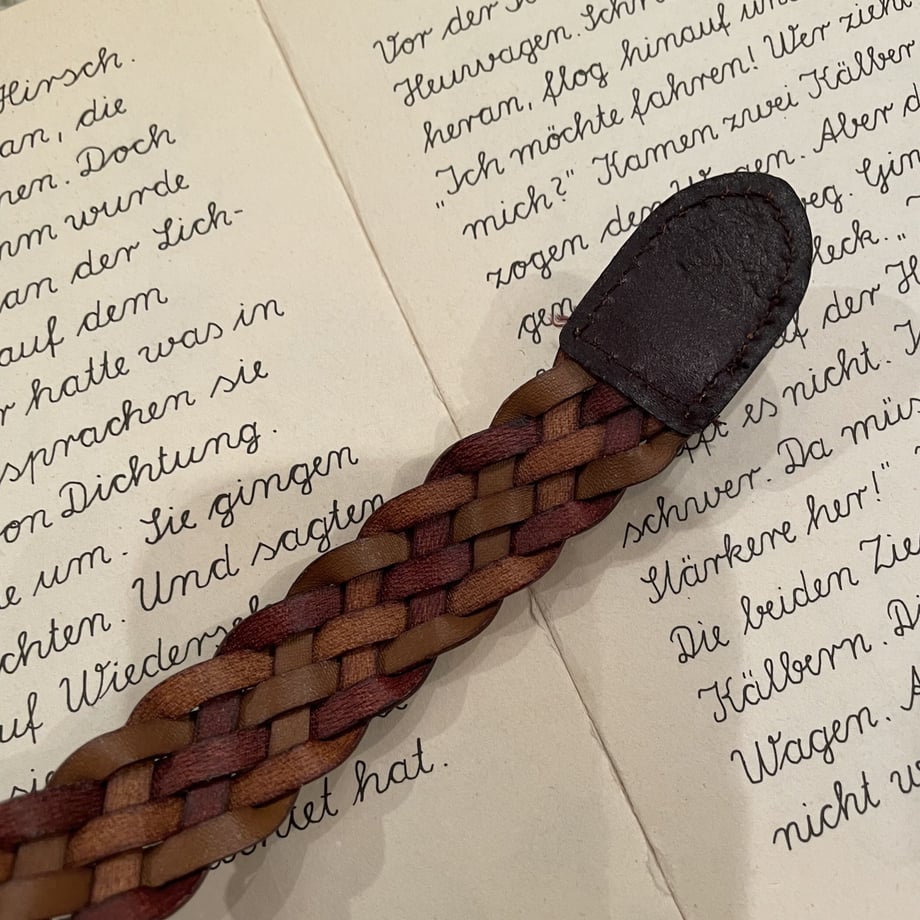 Hirsch.
an, die
nen. Doch
hm wurde
an der Lich-
auf dem
r hatte was in
sprachen sie
on Dichtung.
e um. Sie gingen
chten. Und sagten
uf Wiederseh
sie
htet hat.
Vor der
Heuwagen. Sch
heran, flog hinauf und
"Ich möchte fahren! Wer zieht
mich?" Kamen zwei Kälber
zogen den Wagen. Aber d
gen weg. Gin
fleck. "
auf der H
ppt es nicht.
schwer. Da müs
Stärkere her!"
Die beiden Zie
Kälbern. Di
Wagen. A
nicht w